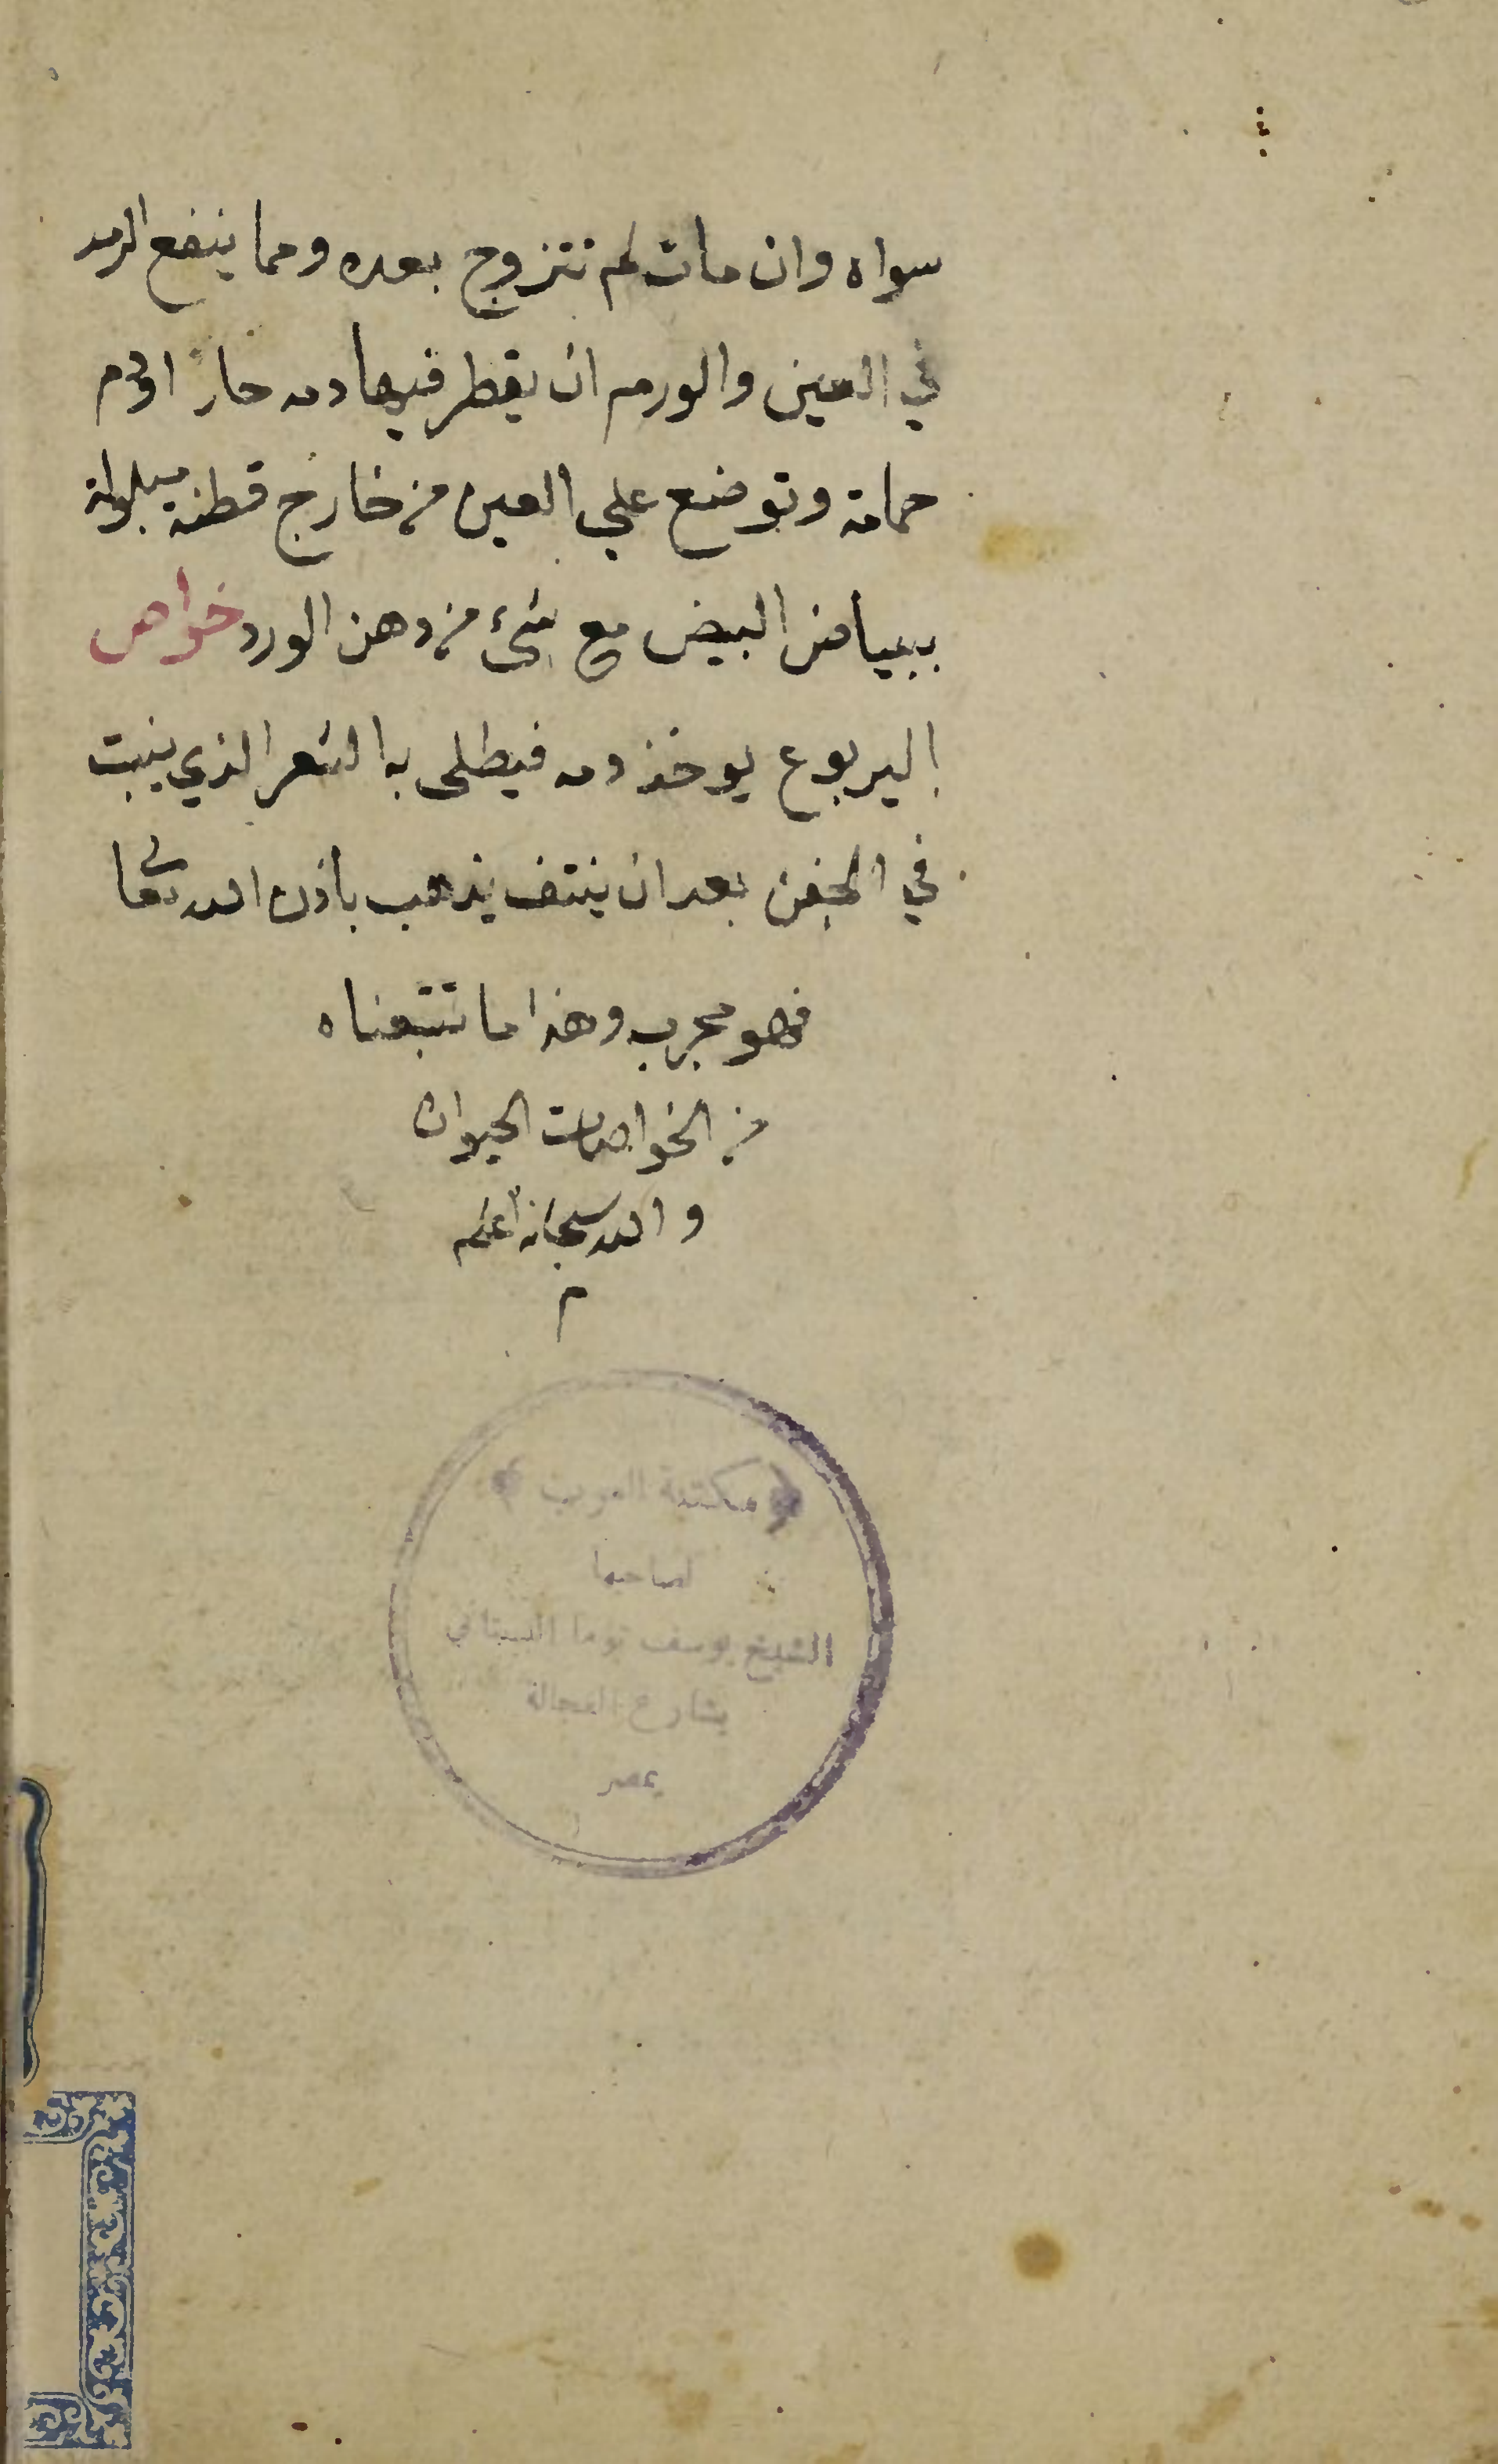 سواه وان مات لم تتزوج بعده ومما ينفع الرمد
في العين والورم ان يقطر فيها دمه حار او دم
حمامة وتوضع علي العين من خارج قطنة مبلولة
ببياض البيض مع شئ من دهن الورد خواص
اليربوع يوخذ دمه فيطلى به الشعر الذي ينبت
في الجفن بعد ان ينتف يذهب باذن الله تعا
فهو مجرب وهذا ما تتبعناه
من الخواصات الحيوان
والله سبحانه أعلم
م
مكتبة العرب
لصاحبها
الشيخ يوسف توما البستاني
بشارع الفجالة
بمصر